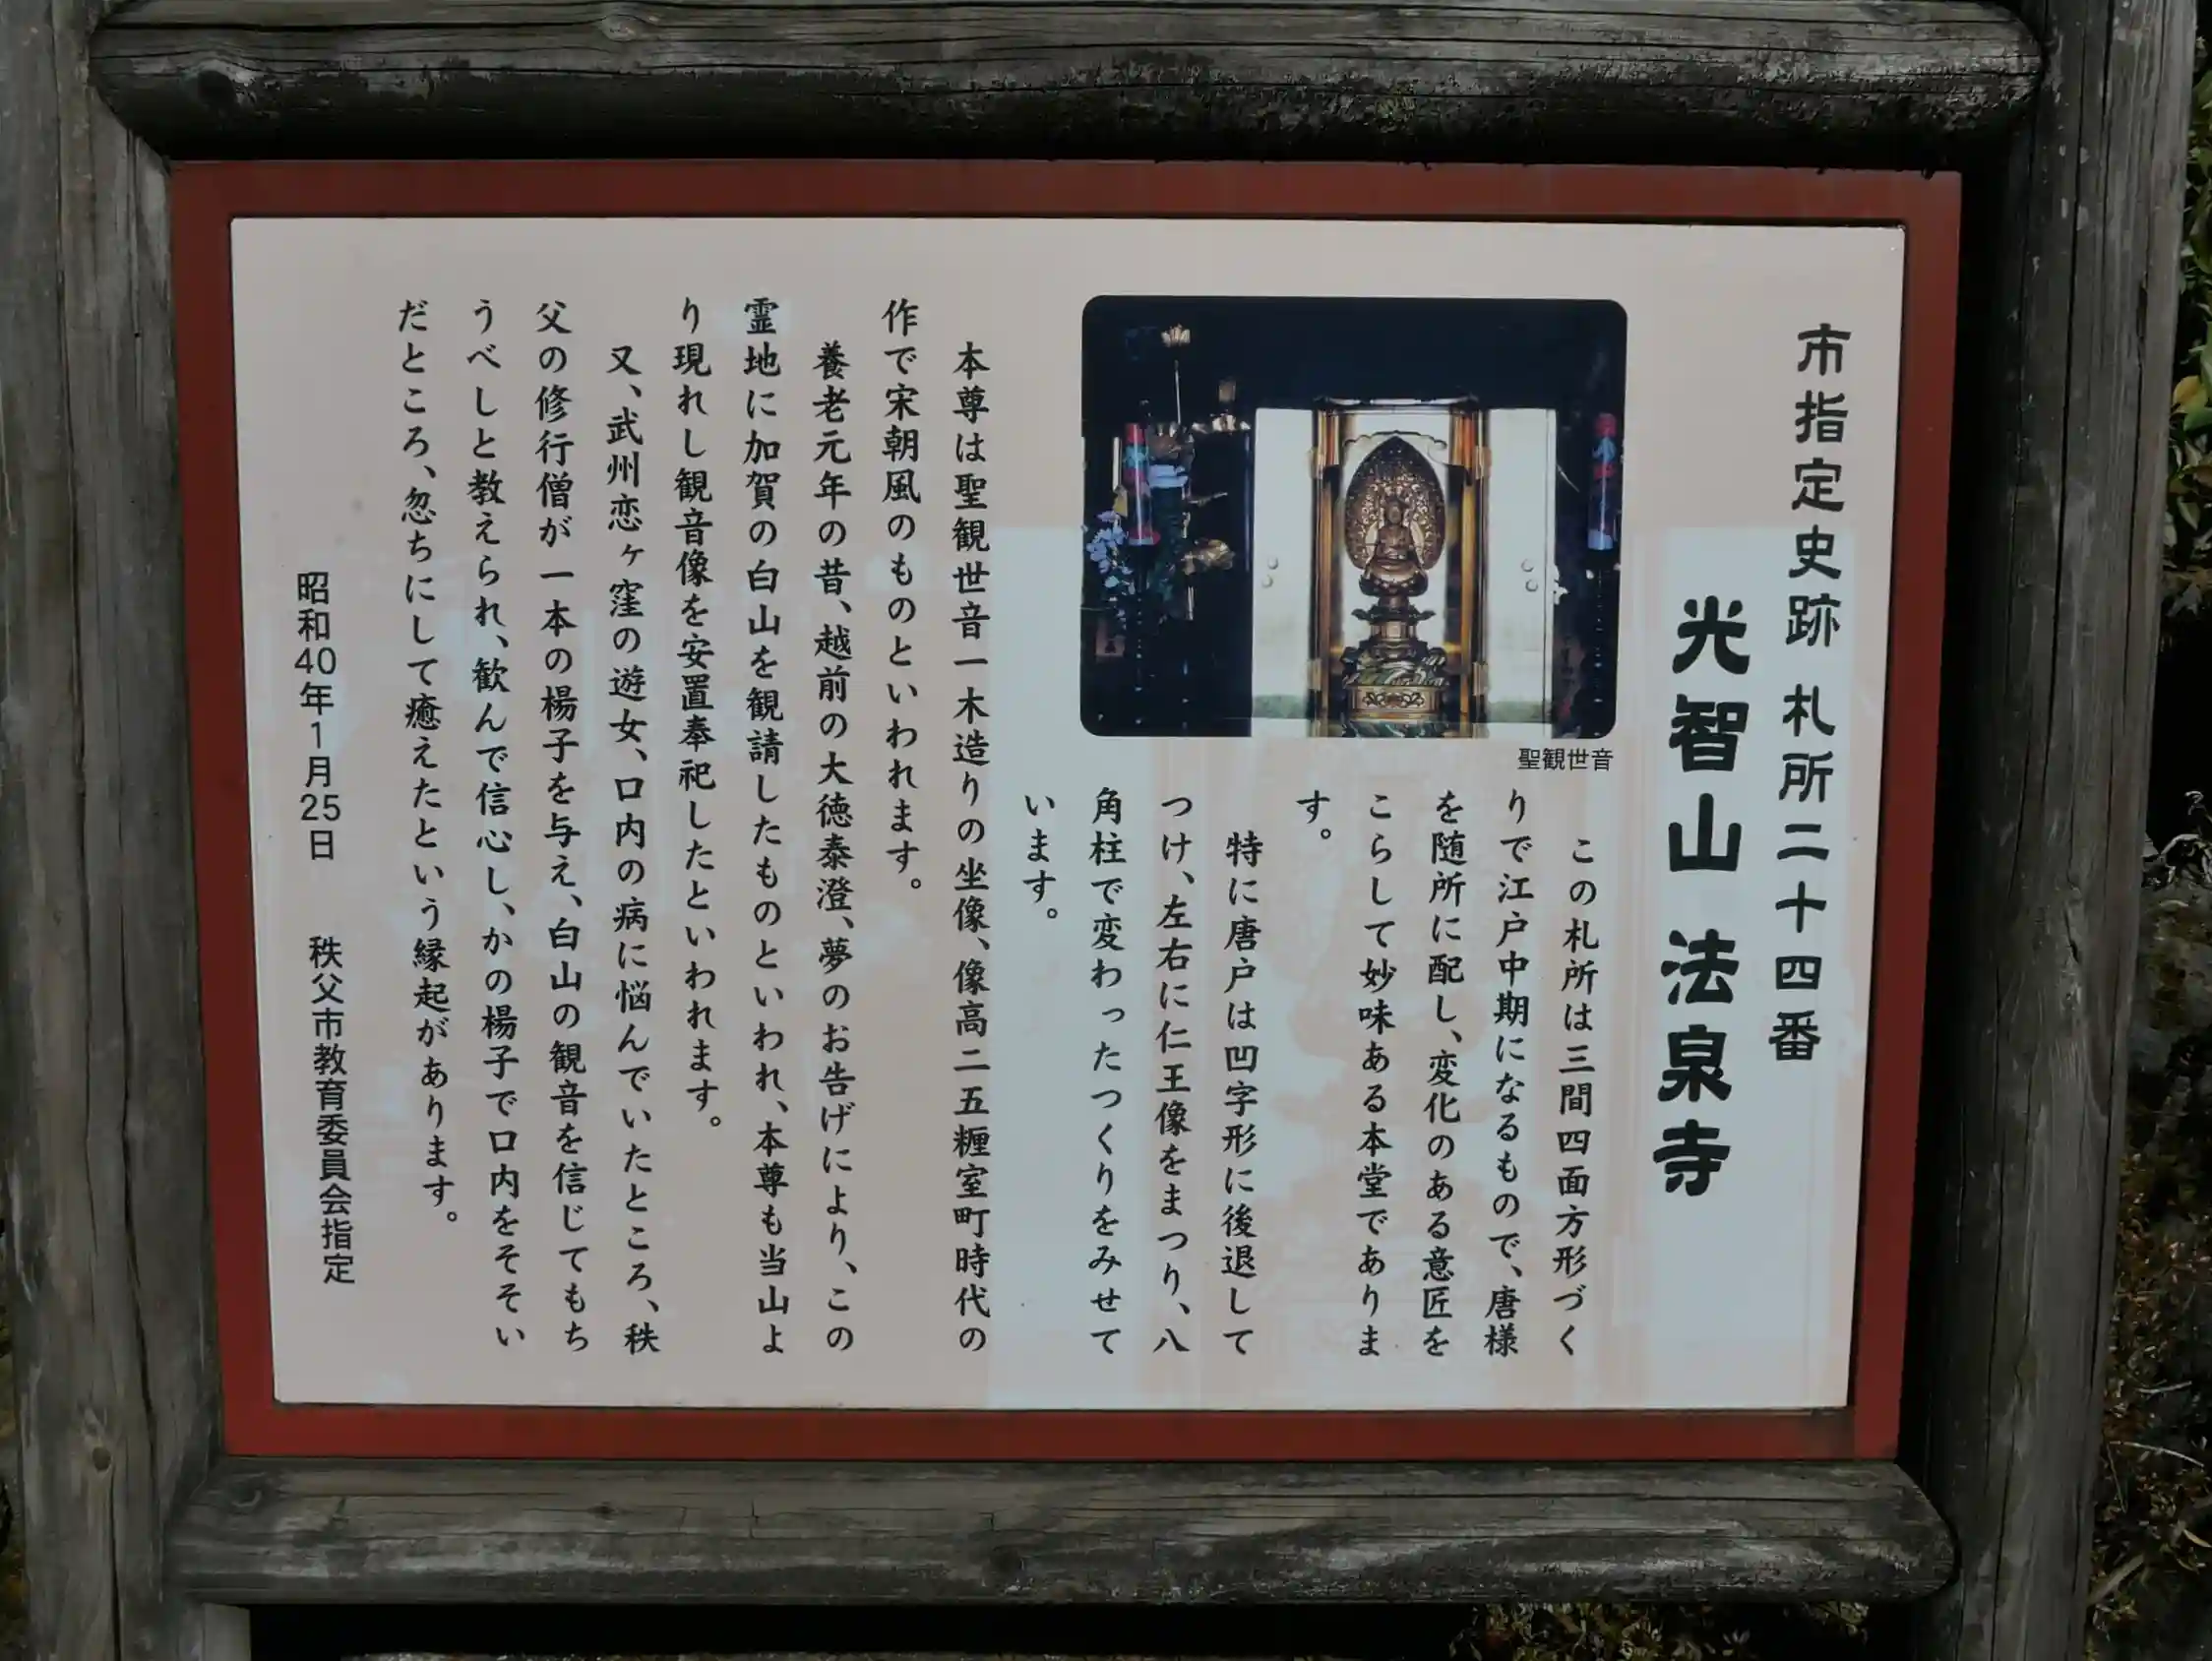 市指定史跡 札所二十四番
光智山 法泉寺
聖観世音
この札所は三間四面方形づく
りで江戸中期になるもので、唐様
を随所に配し、変化のある意匠を
こらして妙味ある本堂でありま
す。
特に唐戸は凹字形に後退して
つけ、左右に仁王像をまつり、八
角柱で変わったつくりをみせて
います。
本尊は聖観世音一木造りの坐像、像高二五糎室町時代の
作で宋朝風のものといわれます。
養老元年の昔、越前の大徳泰澄、夢のお告げにより、この
霊地に加賀の白山を観請したものといわれ、本尊も当山よ
り現れし観音像を安置奉祀したといわれます。
又、武州恋ヶ窪の遊女、口内の病に悩んでいたところ、秩
父の修行僧が一本の楊子を与え、白山の観音を信じてもち
うべしと教えられ、歓んで信心し、かの楊子で口内をそそい
だところ、忽ちにして癒えたという縁起があります。
昭和40年1月25日 秩父市教育委員会指定